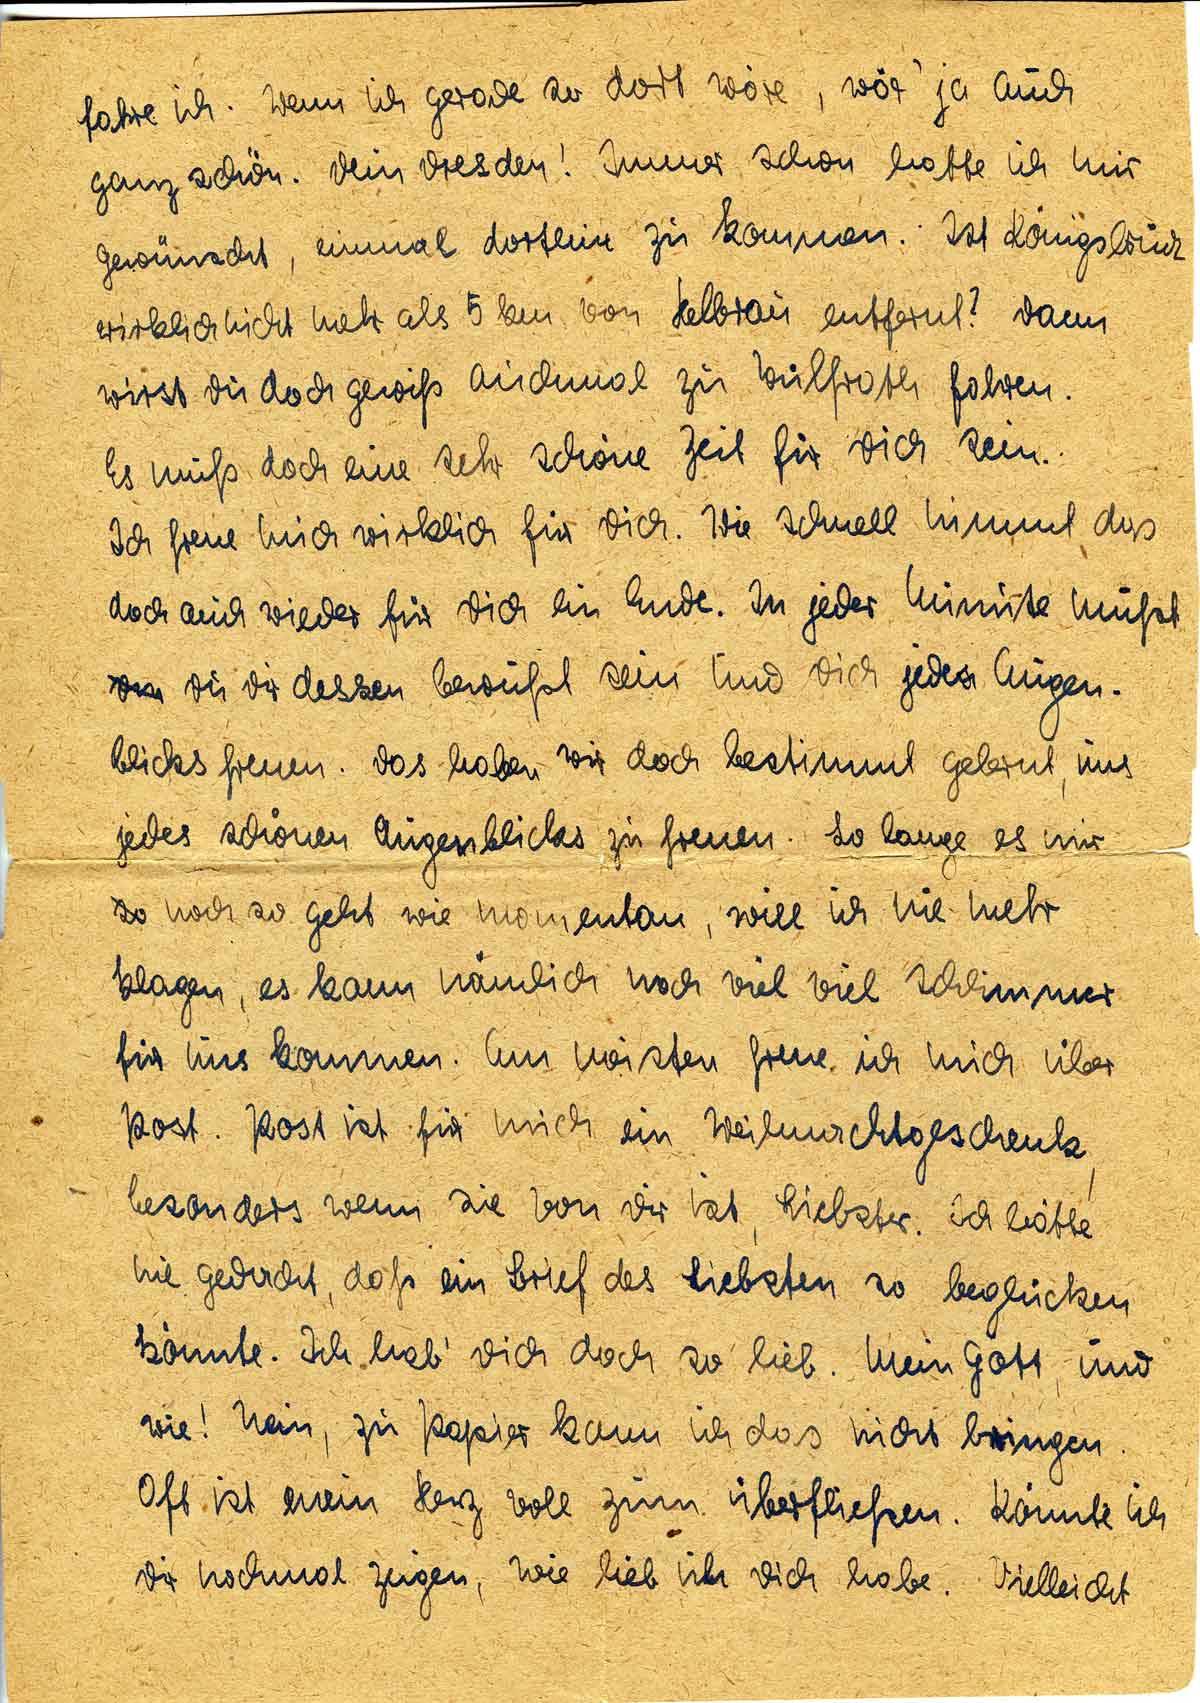 fahre ich. Wenn ich gerade so dort wäre, wär' ja auch
ganz schön. Dein Dresden! Immer schon hatte ich mir
gewünscht, einmal dorthin zu kommen. Ist Königsbrück
wirklich nicht mehr als 5 km von entfernt? Dann
wirst du doch gewiß auchmal zu fahren.
Es muß doch eine sehr schöne Zeit für dich sein.
Ich freue mich wirklich für dich. Wie schnell nimmt das
doch auch wieder für dich ein Ende. In jeder Minute mußt
du dir dessen bewußt sein und dich jedes Augen-
blicks freuen. Das haben wir doch bestimmt gelernt, uns
jedes schönen Augenblicks zu freuen. So lange es mir
so noch so geht wie momentan, will ich nie mehr
klagen, es kann nämlich noch viel viel schlimmer
für uns kommen. Am meisten freue ich mich über
Post. Post ist für mich ein Weihnachtsgeschenk,
besonders wenn sie von dir ist, Liebster. Ich hätte
nie gedacht, daß ein Brief des Liebsten so beglücken
könnte. Ich hab' dich doch so lieb. Mein Gott, und
wie! Nein, zu Papier kann ich das nicht bringen.
Oft ist mein Herz voll zum überfließen. Könnte ich
dir nochmal zeigen, wie lieb ich dich habe. Vielleicht